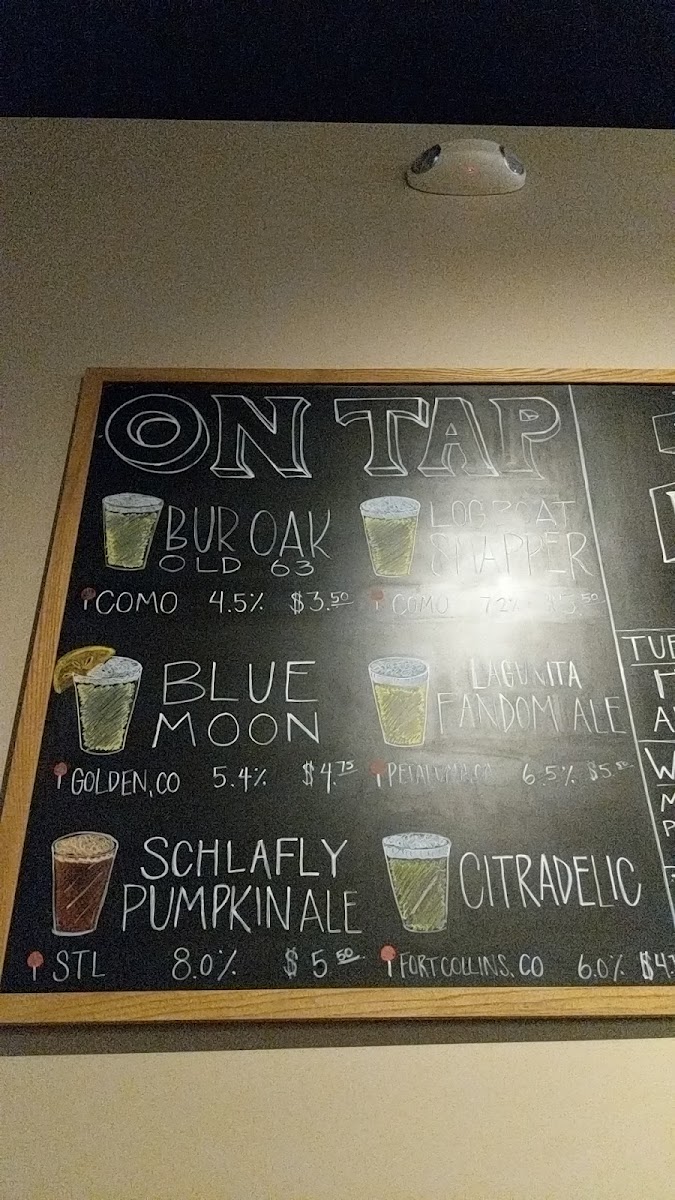 ON TAP
BUR OAK
OLD 63
COMO 4.5% $3.50
SNAPPER
COMO
BLUE
MOON
GOLDEN, CO 5.4% $4.75
LAGUNITA
FANDOM ALE
6.5% $5.50
SCHLAFLY
PUMPKIN ALE
STL 8.0% $5.50
CITRADELIC
FORT COLLINS, CO 6.0%
TUE